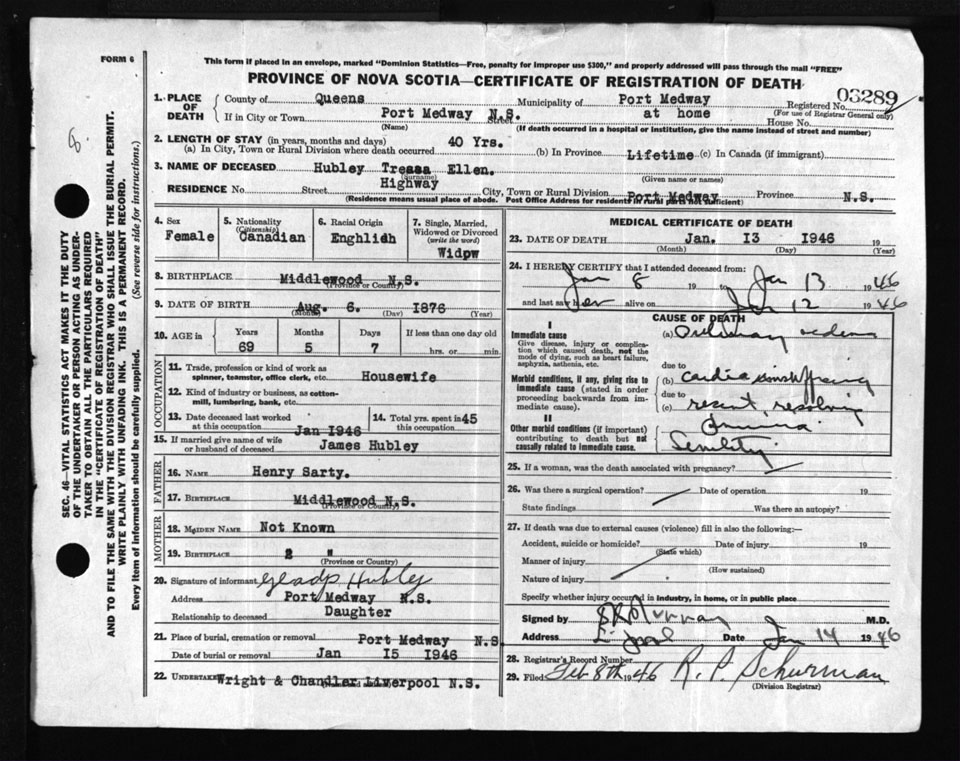 FORM 6
This form if placed in an envelope, marked "Dominion Statistics—Free, penalty for improper use $300," and properly addressed will pass through the mail "FREE"
PROVINCE OF NOVA SCOTIA—CERTIFICATE OF REGISTRATION OF DEATH
03289
SEC. 46—VITAL STATISTICS ACT MAKES IT THE DUTY
OF THE UNDERTAKER OR PERSON ACTING AS UNDER-
TAKER TO OBTAIN ALL THE PARTICULARS REQUIRED
IN THE "CERTIFICATE OF REGISTRATION OF DEATH"
AND TO FILE THE SAME WITH THE DIVISION REGISTRAR WHO SHALL ISSUE THE BURIAL PERMIT.
WRITE PLAINLY WITH UNFADING INK. THIS IS A PERMANENT RECORD.
Every item of information should be carefully supplied. (See reverse side for instructions.)
1. PLACE OF DEATH County of Queens Municipality of Port Medway Registered No.
(For use of Registrar General only)
If in City or Town Port Medway N.S. Street at home House No.
(Name) (If death occurred in a hospital or institution, give the name instead of street and number)
2. LENGTH OF STAY (in years, months and days)
(a) In City, Town or Rural Division where death occurred 40 Yrs. (b) In Province Lifetime (c) In Canada (if immigrant)
3. NAME OF DECEASED Hubley Tressa Ellen.
(Surname) (Given name or names)
RESIDENCE No. Street Highway City, Town or Rural Division Port Medway Province N.S.
(Residence means usual place of abode. Post Office Address for residents in rural parts not sufficient)
4. Sex
Female
5. Nationality
(Citizenship)
Canadian
6. Racial Origin
Enghlish
7. Single, Married,
Widowed or Divorced
(write the word)
Widow
8. BIRTHPLACE Middlewood N.S.
(Province or Country)
9. DATE OF BIRTH Aug. 6. 1876
(Month) (Day) (Year)
10. AGE in Years Months Days If less than one day old
69 5 7 hrs. or min.
OCCUPATION
11. Trade, profession or kind of work as
spinner, teamster, office clerk, etc. Housewife
12. Kind of industry or business, as cotton-
mill, lumbering, bank, etc.
13. Date deceased last worked
at this occupation Jan 1946
14. Total yrs. spent in 45
this occupation
15. If married give name of wife
or husband of deceased James Hubley
FATHER
16. NAME Henry Sarty.
17. BIRTHPLACE Middlewood N.S.
(Province or Country)
MOTHER
18. MAIDEN NAME Not Known
19. BIRTHPLACE 2 "
(Province or Country)
20. Signature of informant Gladys Hubley
Address Port Medway N.S.
Relationship to deceased Daughter
21. Place of burial, cremation or removal Port Medway N.S.
Date of burial or removal Jan 15 1946
22. UNDERTAKER Wright & Chandler Liverpool N.S.
MEDICAL CERTIFICATE OF DEATH
23. DATE OF DEATH Jan. 13 1946 19
(Month) (Day) (Year)
24. I HEREBY CERTIFY that I attended deceased from:
Jan 8 19 to Jan 13 1946
and last saw her alive on Jan 12 1946
CAUSE OF DEATH
I
Immediate cause (a) Pulmonary oedema
Give disease, injury or complica-
tion which caused death, not the
mode of dying, such as heart failure,
asphyxia, asthenia, etc.
due to
Morbid conditions, if any, giving rise to
immediate cause (stated in order
proceeding backwards from im-
mediate cause).
(b) cardiac
due to
(c) recent, resolving
II
Other morbid conditions (if important)
contributing to death but not
causally related to immediate cause.
Senility
25. If a woman, was the death associated with pregnancy?
26. Was there a surgical operation? Date of operation 19
State findings Was there an autopsy?
27. If death was due to external causes (violence) fill in also the following:—
Accident, suicide or homicide? Date of injury 19
(State which)
Manner of injury
(How sustained)
Nature of injury
Specify whether injury occurred in industry, in home, or in public place
Signed by Murray M.D.
Address L'pool Date Jan 14 1946
28. Registrar's Record Number
29. Filed Feb 8th 1946 R. P. Schurman
(Division Registrar)